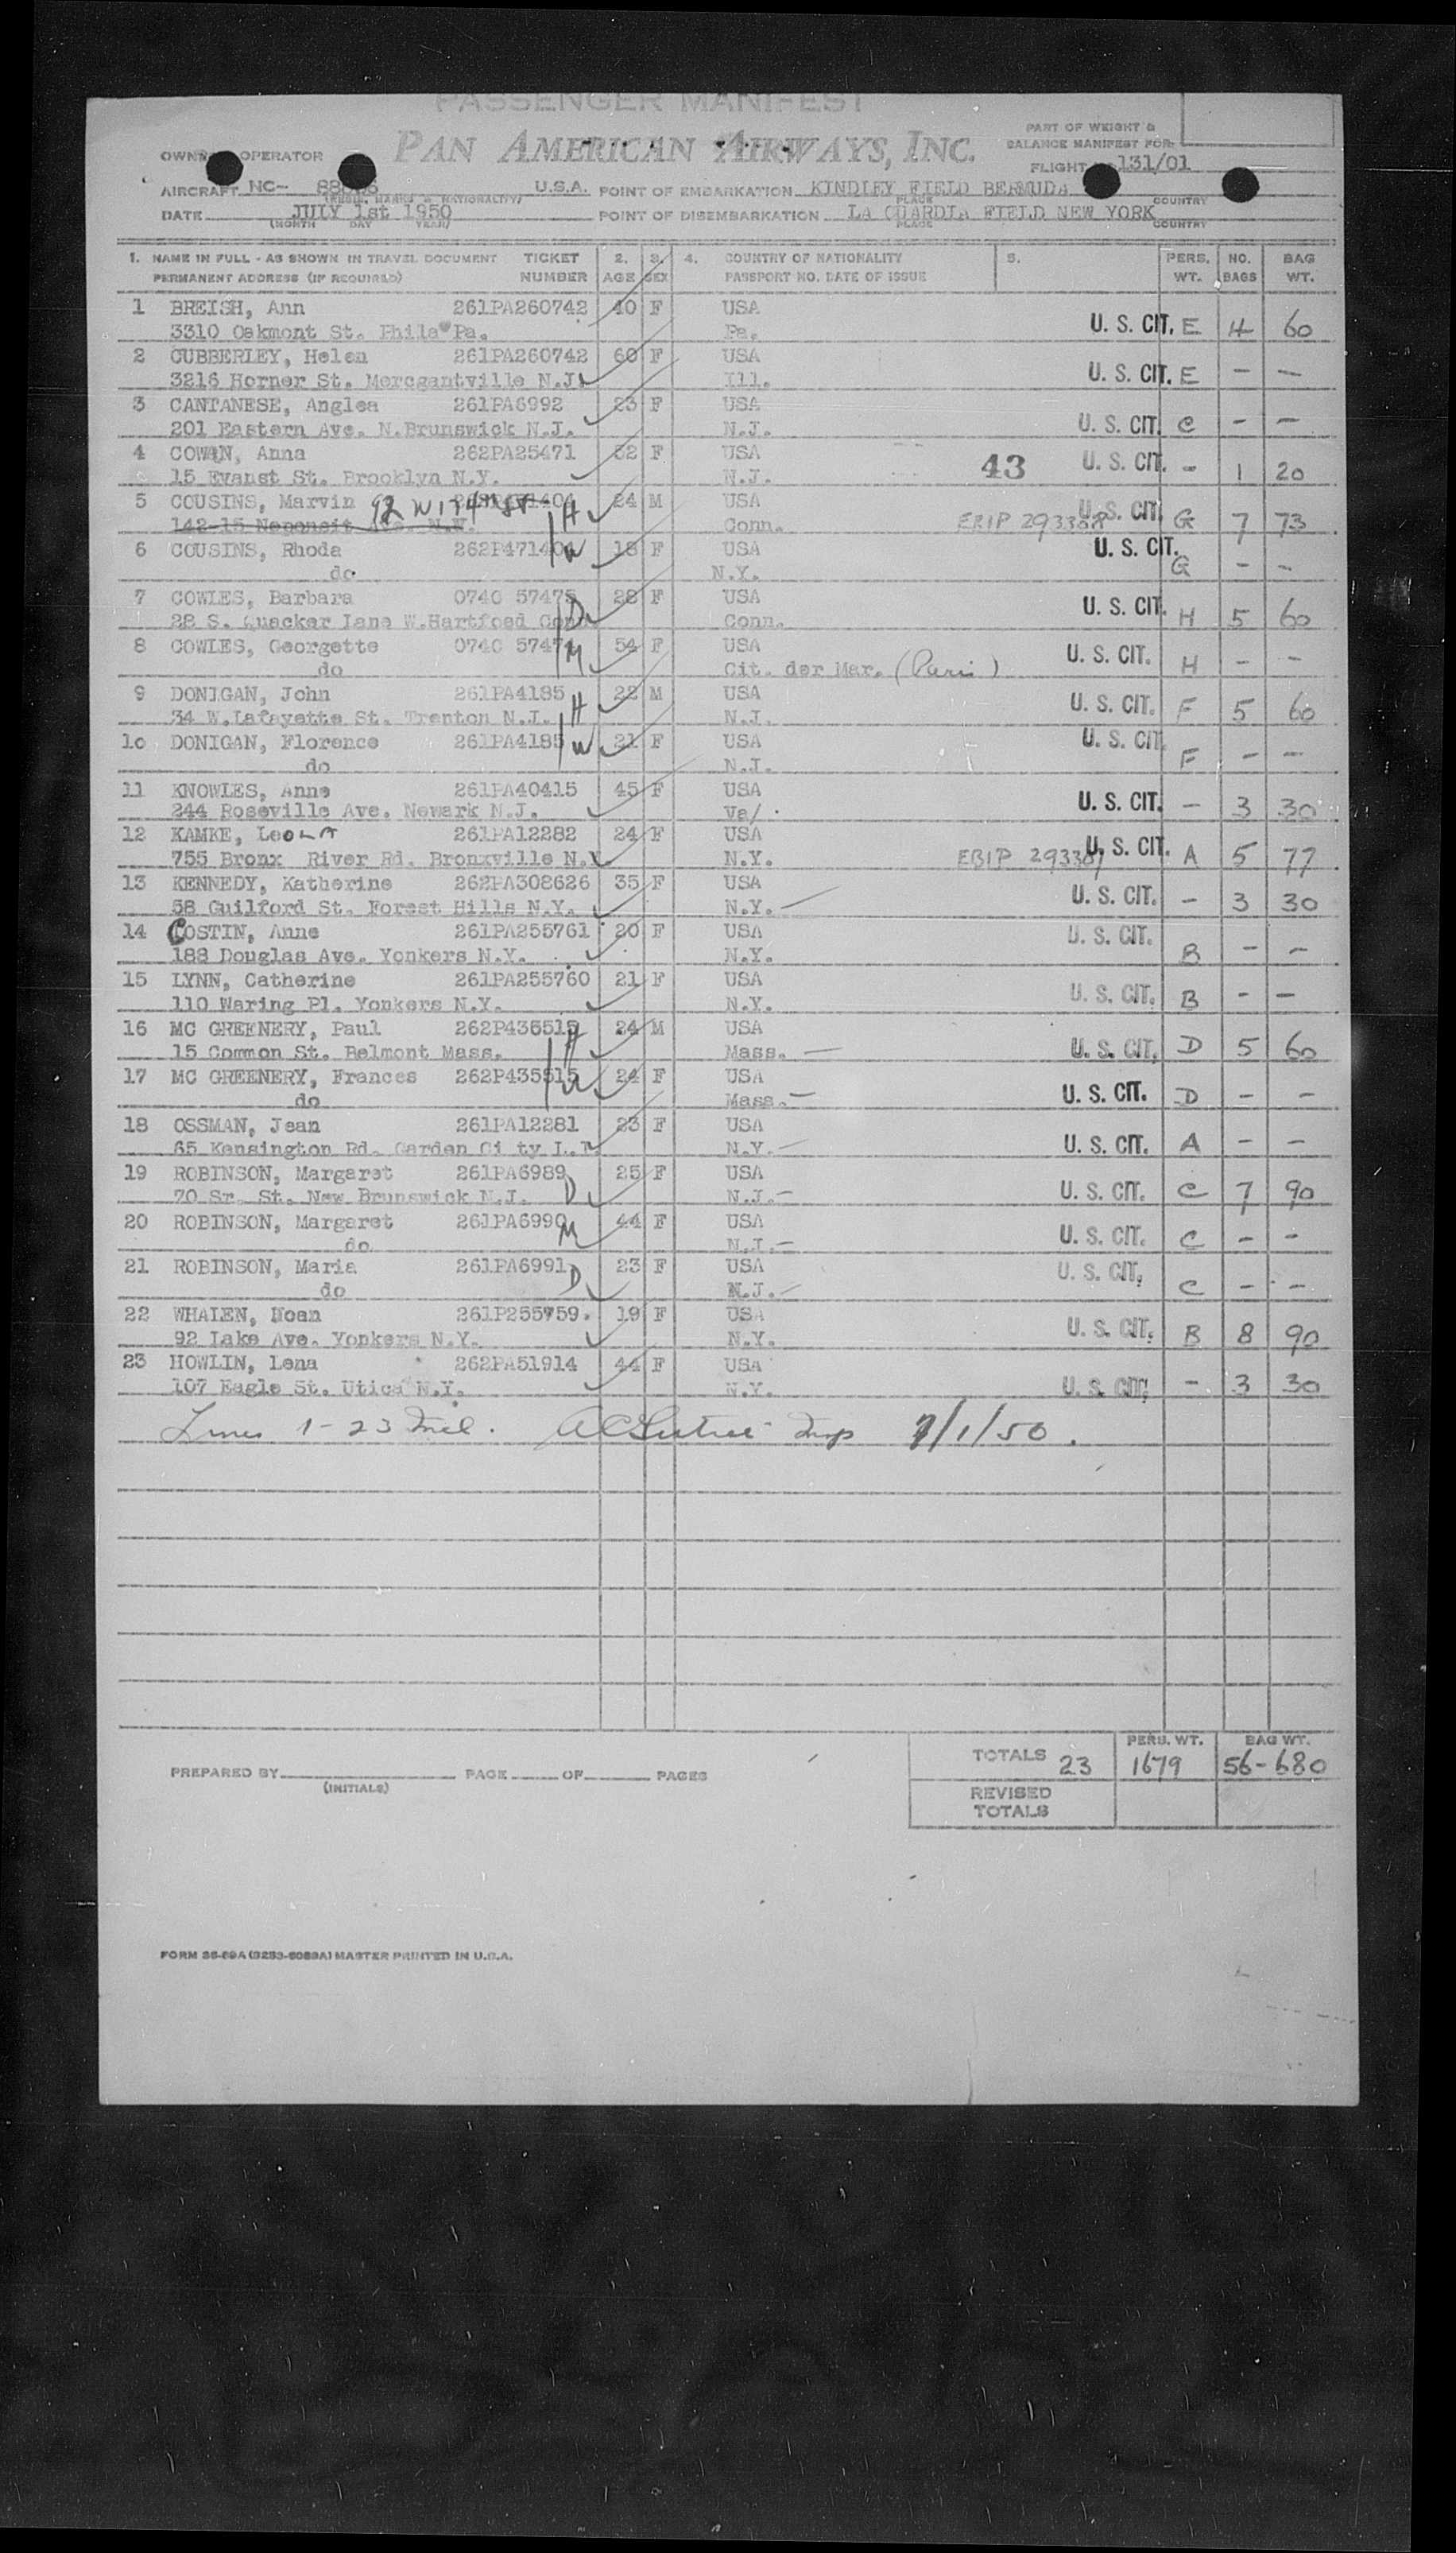 PASSENGER MANIFEST
OWNER OPERATOR PAN AMERICAN AIRWAYS, INC. PART OF WEIGHT & BALANCE MANIFEST FOR
FLIGHT 131/01
AIRCRAFT NC- U.S.A. POINT OF EMBARKATION KINDLEY FIELD BERMUDA
(REGIS. MARKS & NATIONALITY) PLACE COUNTRY
DATE JULY 1st 1950 POINT OF DISEMBARKATION LA GUARDIA FIELD NEW YORK
(MONTH DAY YEAR) PLACE COUNTRY
1. NAME IN FULL - AS SHOWN IN TRAVEL DOCUMENT TICKET 2. 3. 4. COUNTRY OF NATIONALITY 5. PERS. NO. BAG
PERMANENT ADDRESS (IF REQUIRED) NUMBER AGE SEX PASSPORT NO. DATE OF ISSUE WT. BAGS WT.
1 BREISH, Ann 261PA260742 40 F USA
3310 Oakmont St. Phila Pa. Pa. U. S. CIT. E 4 60
2 CUBBERLEY, Helen 261PA260742 60 F USA
3216 Horner St. Mercgantville N.J. Ill. U. S. CIT. E - -
3 CANTANESE, Anglea 261PA6992 23 F USA
201 Eastern Ave. N.Brunswick N.J. N.J. U. S. CIT. C - -
4 COWAN, Anna 262PA25471 52 F USA
15 Evanst St. Brooklyn N.Y. N.J. 43 U. S. CIT. - 1 20
5 COUSINS, Marvin 92 W 174th St H 24 M USA
142-15 Neponsit Ave. N.Y. Conn. U. S. CIT. G 7 73
6 COUSINS, Rhoda 262P471404 W 18 F USA U. S. CIT.
do N.Y. G - -
7 COWLES, Barbara 0740 57475 28 F USA
28 S. Quacker Lane W.Hartfoed Conn. D Conn. U. S. CIT. H 5 60
8 COWLES, Georgette 0740 57474 M 54 F USA
do Cit. der Mar. (Paris) U. S. CIT. H - -
9 DONIGAN, John 261PA4185 22 M USA
34 W.Lafayette St. Trenton N.J. H N.J. U. S. CIT. F 5 60
10 DONIGAN, Florence 261PA4185 W 21 F USA U. S. CIT.
do N.J. F - -
11 KNOWLES, Anne 261PA40415 45 F USA
244 Roseville Ave. Newark N.J. Va/ U. S. CIT. - 3 30
12 KAMKE, Leola 261PA12282 24 F USA
755 Bronx River Rd. Bronxville N.Y. N.Y. U. S. CIT. A 5 77
13 KENNEDY, Katherine 262PA308626 35 F USA
58 Guilford St. Forest Hills N.Y. N.Y. - U. S. CIT. - 3 30
14 COSTIN, Anne 261PA255761 20 F USA U. S. CIT.
188 Douglas Ave. Yonkers N.Y. N.Y. B - -
15 LYNN, Catherine 261PA255760 21 F USA
110 Waring Pl. Yonkers N.Y. N.Y. U. S. CIT. B - -
16 MC GREENERY, Paul 262P435515 24 M USA
15 Common St. Belmont Mass. H Mass. - U. S. CIT. D 5 60
17 MC GREENERY, Frances 262P435515 W 24 F USA
do Mass. - U. S. CIT. D - -
18 OSSMAN, Jean 261PA12281 23 F USA
65 Kensington Rd. Garden Ci ty L.I. N.Y. - U. S. CIT. A - -
19 ROBINSON, Margaret 261PA6989 25 F USA
70 Sr. St. New Brunswick N.J. D N.J. - U. S. CIT. C 7 90
20 ROBINSON, Margaret 261PA6990 M 44 F USA
do N.J. - U. S. CIT. C - -
21 ROBINSON, Maria 261PA6991 D 23 F USA U. S. CIT.
do N.J. - C - -
22 WHALEN, Noan 261P255759. 19 F USA
92 Lake Ave. Yonkers N.Y. N.Y. U. S. CIT. B 8 90
23 HOWLIN, Lena 262PA51914 44 F USA
107 Eagle St. Utica N.Y. N.Y. U. S. CIT. - 3 30
Lines 1-23 Incl. Insp 7/1/50.
TOTALS 23 PERS. WT. 1679 BAG WT. 56-680
PREPARED BY (INITIALS) PAGE OF PAGES
REVISED TOTALS
FORM 36-69A (3283-6088A) MASTER PRINTED IN U.S.A.